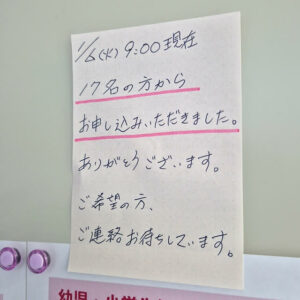 1/6(火) 9:00現在
17名の方から
お申し込みいただきました。
ありがとうございます。
ご希望の方、
ご連絡お待ちしています。